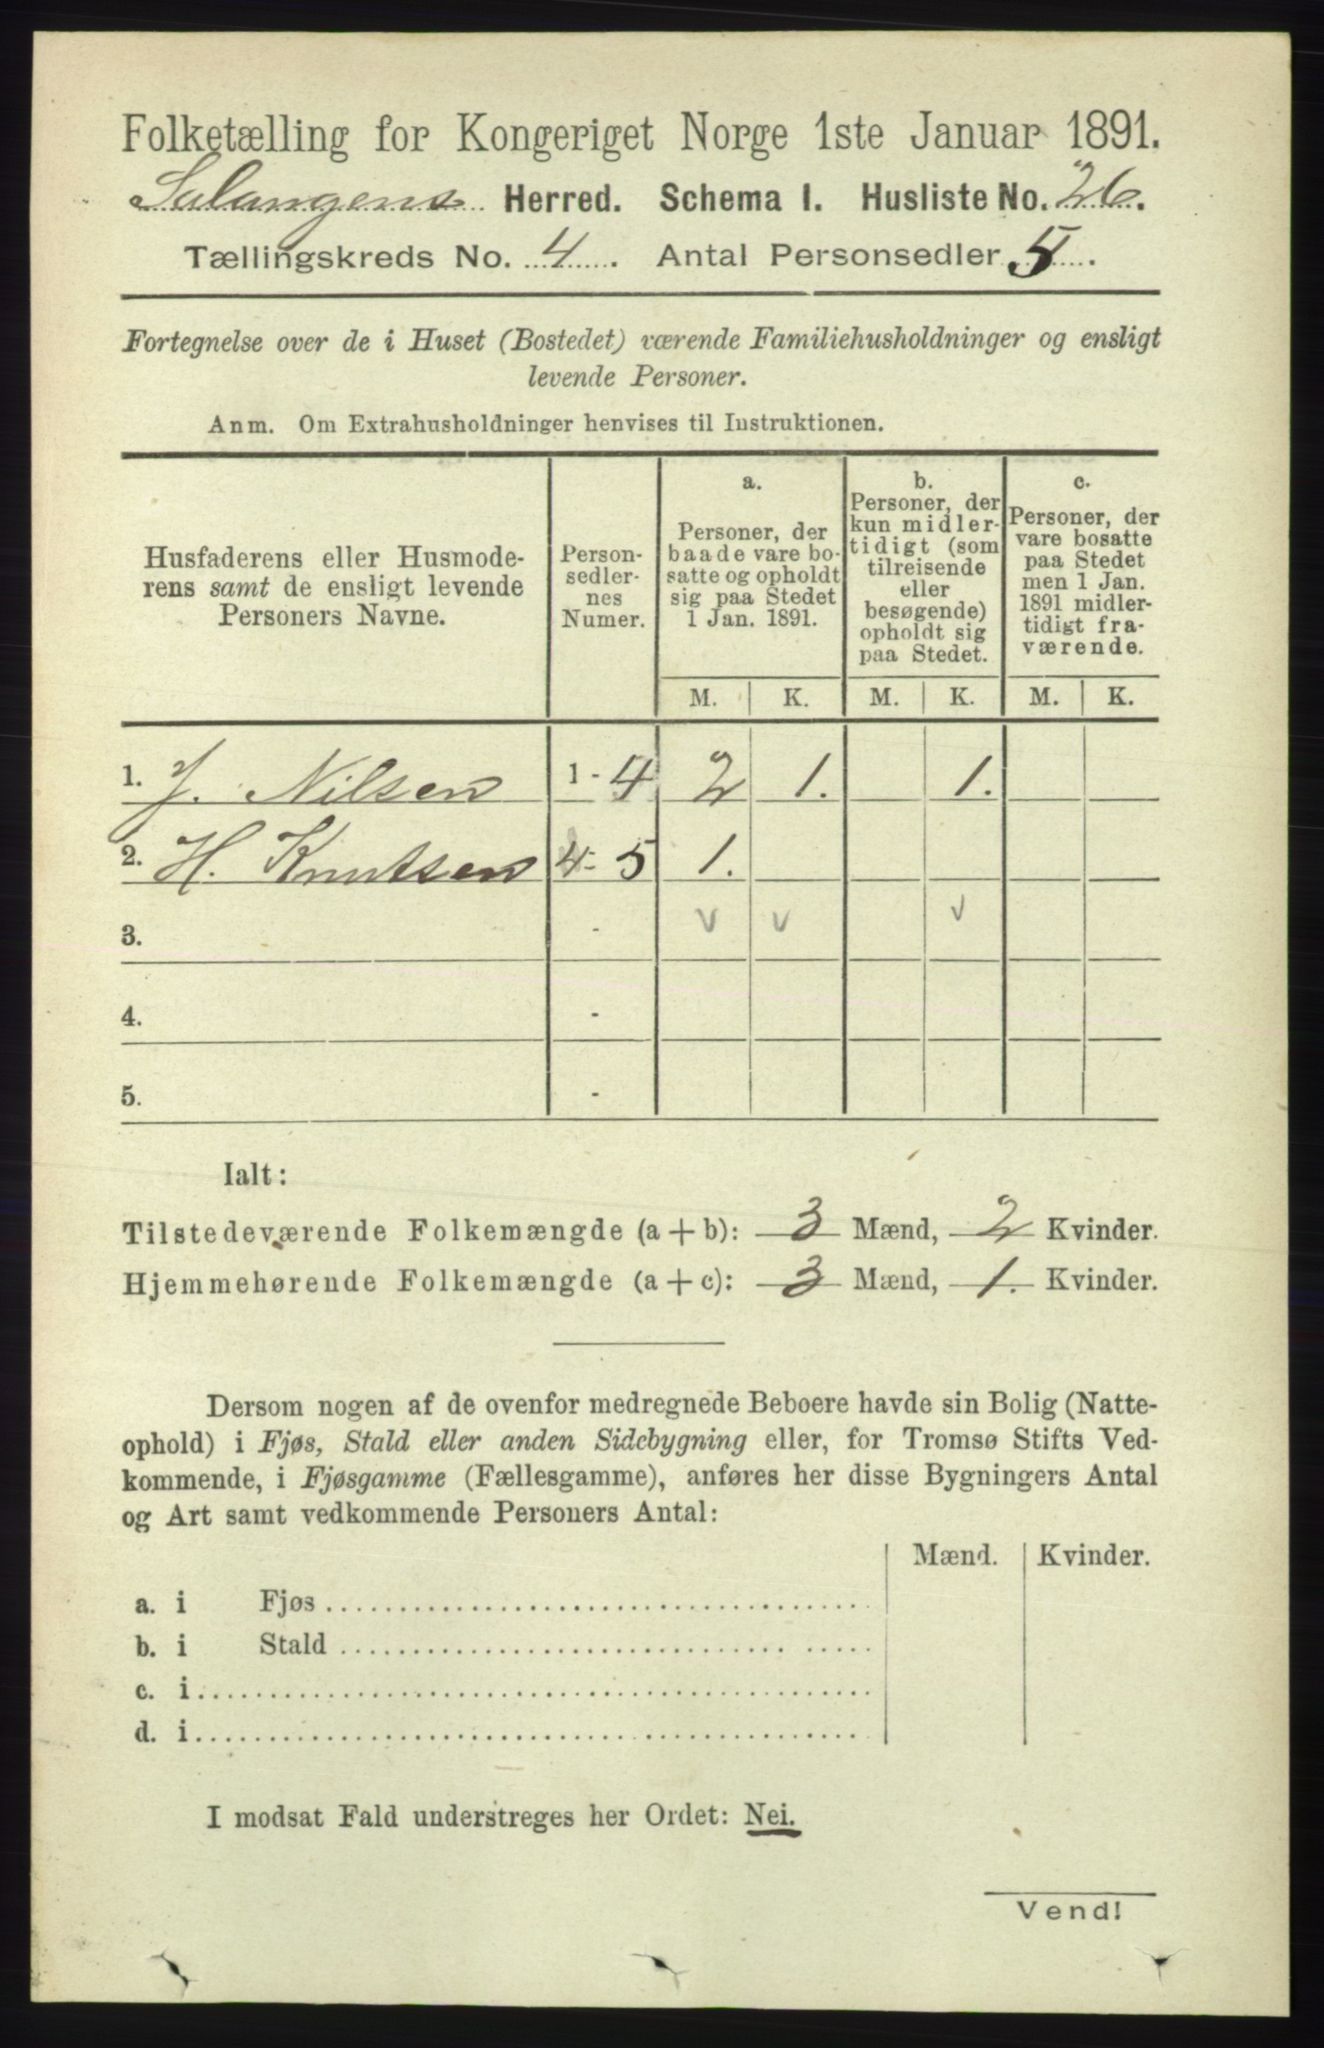 Folketælling for Kongeriget Norge 1ste Januar 1891.
Salangens Herred. Schema I. Husliste No. 26.
Tællingskreds No. 4. Antal Personsedler 5.
Fortegnelse over de i Huset (Bostedet) værende Familiehusholdninger og ensligt
levende Personer.
Anm. Om Extrahusholdninger henvises til Instruktionen.
Husfaderens eller Husmode-
rens samt de ensligt levende
Personers Navne.
Person-
sedler-
nes
Numer.
a.
Personer, der
baade vare bo-
satte og opholdt
sig paa Stedet
1 Jan. 1891.
b.
Personer, der
kun midler-
tidigt (som
tilreisende
eller
besøgende)
opholdt sig
paa Stedet.
c.
Personer, der
vare bosatte
paa Stedet
men 1 Jan.
1891 midler-
tidigt fra-
værende.
M. K. M. K. M. K.
1. J. Nilsen 1 - 4 2 1. 1.
2. H. Knutsen 4 - 5 1.
3. - v v v
4. -
5. -
Ialt:
Tilstedeværende Folkemængde (a + b): 3 Mænd, 2 Kvinder.
Hjemmehørende Folkemængde (a + c): 3 Mænd, 1. Kvinder.
Dersom nogen af de ovenfor medregnede Beboere havde sin Bolig (Natte-
ophold) i Fjøs, Stald eller anden Sidebygning eller, for Tromsø Stifts Ved-
kommende, i Fjøsgamme (Fællesgamme), anføres her disse Bygningers Antal
og Art samt vedkommende Personers Antal:
Mænd. Kvinder.
a. i Fjøs
b. i Stald
c. i
d. i
I modsat Fald understreges her Ordet: Nei.
Vend!